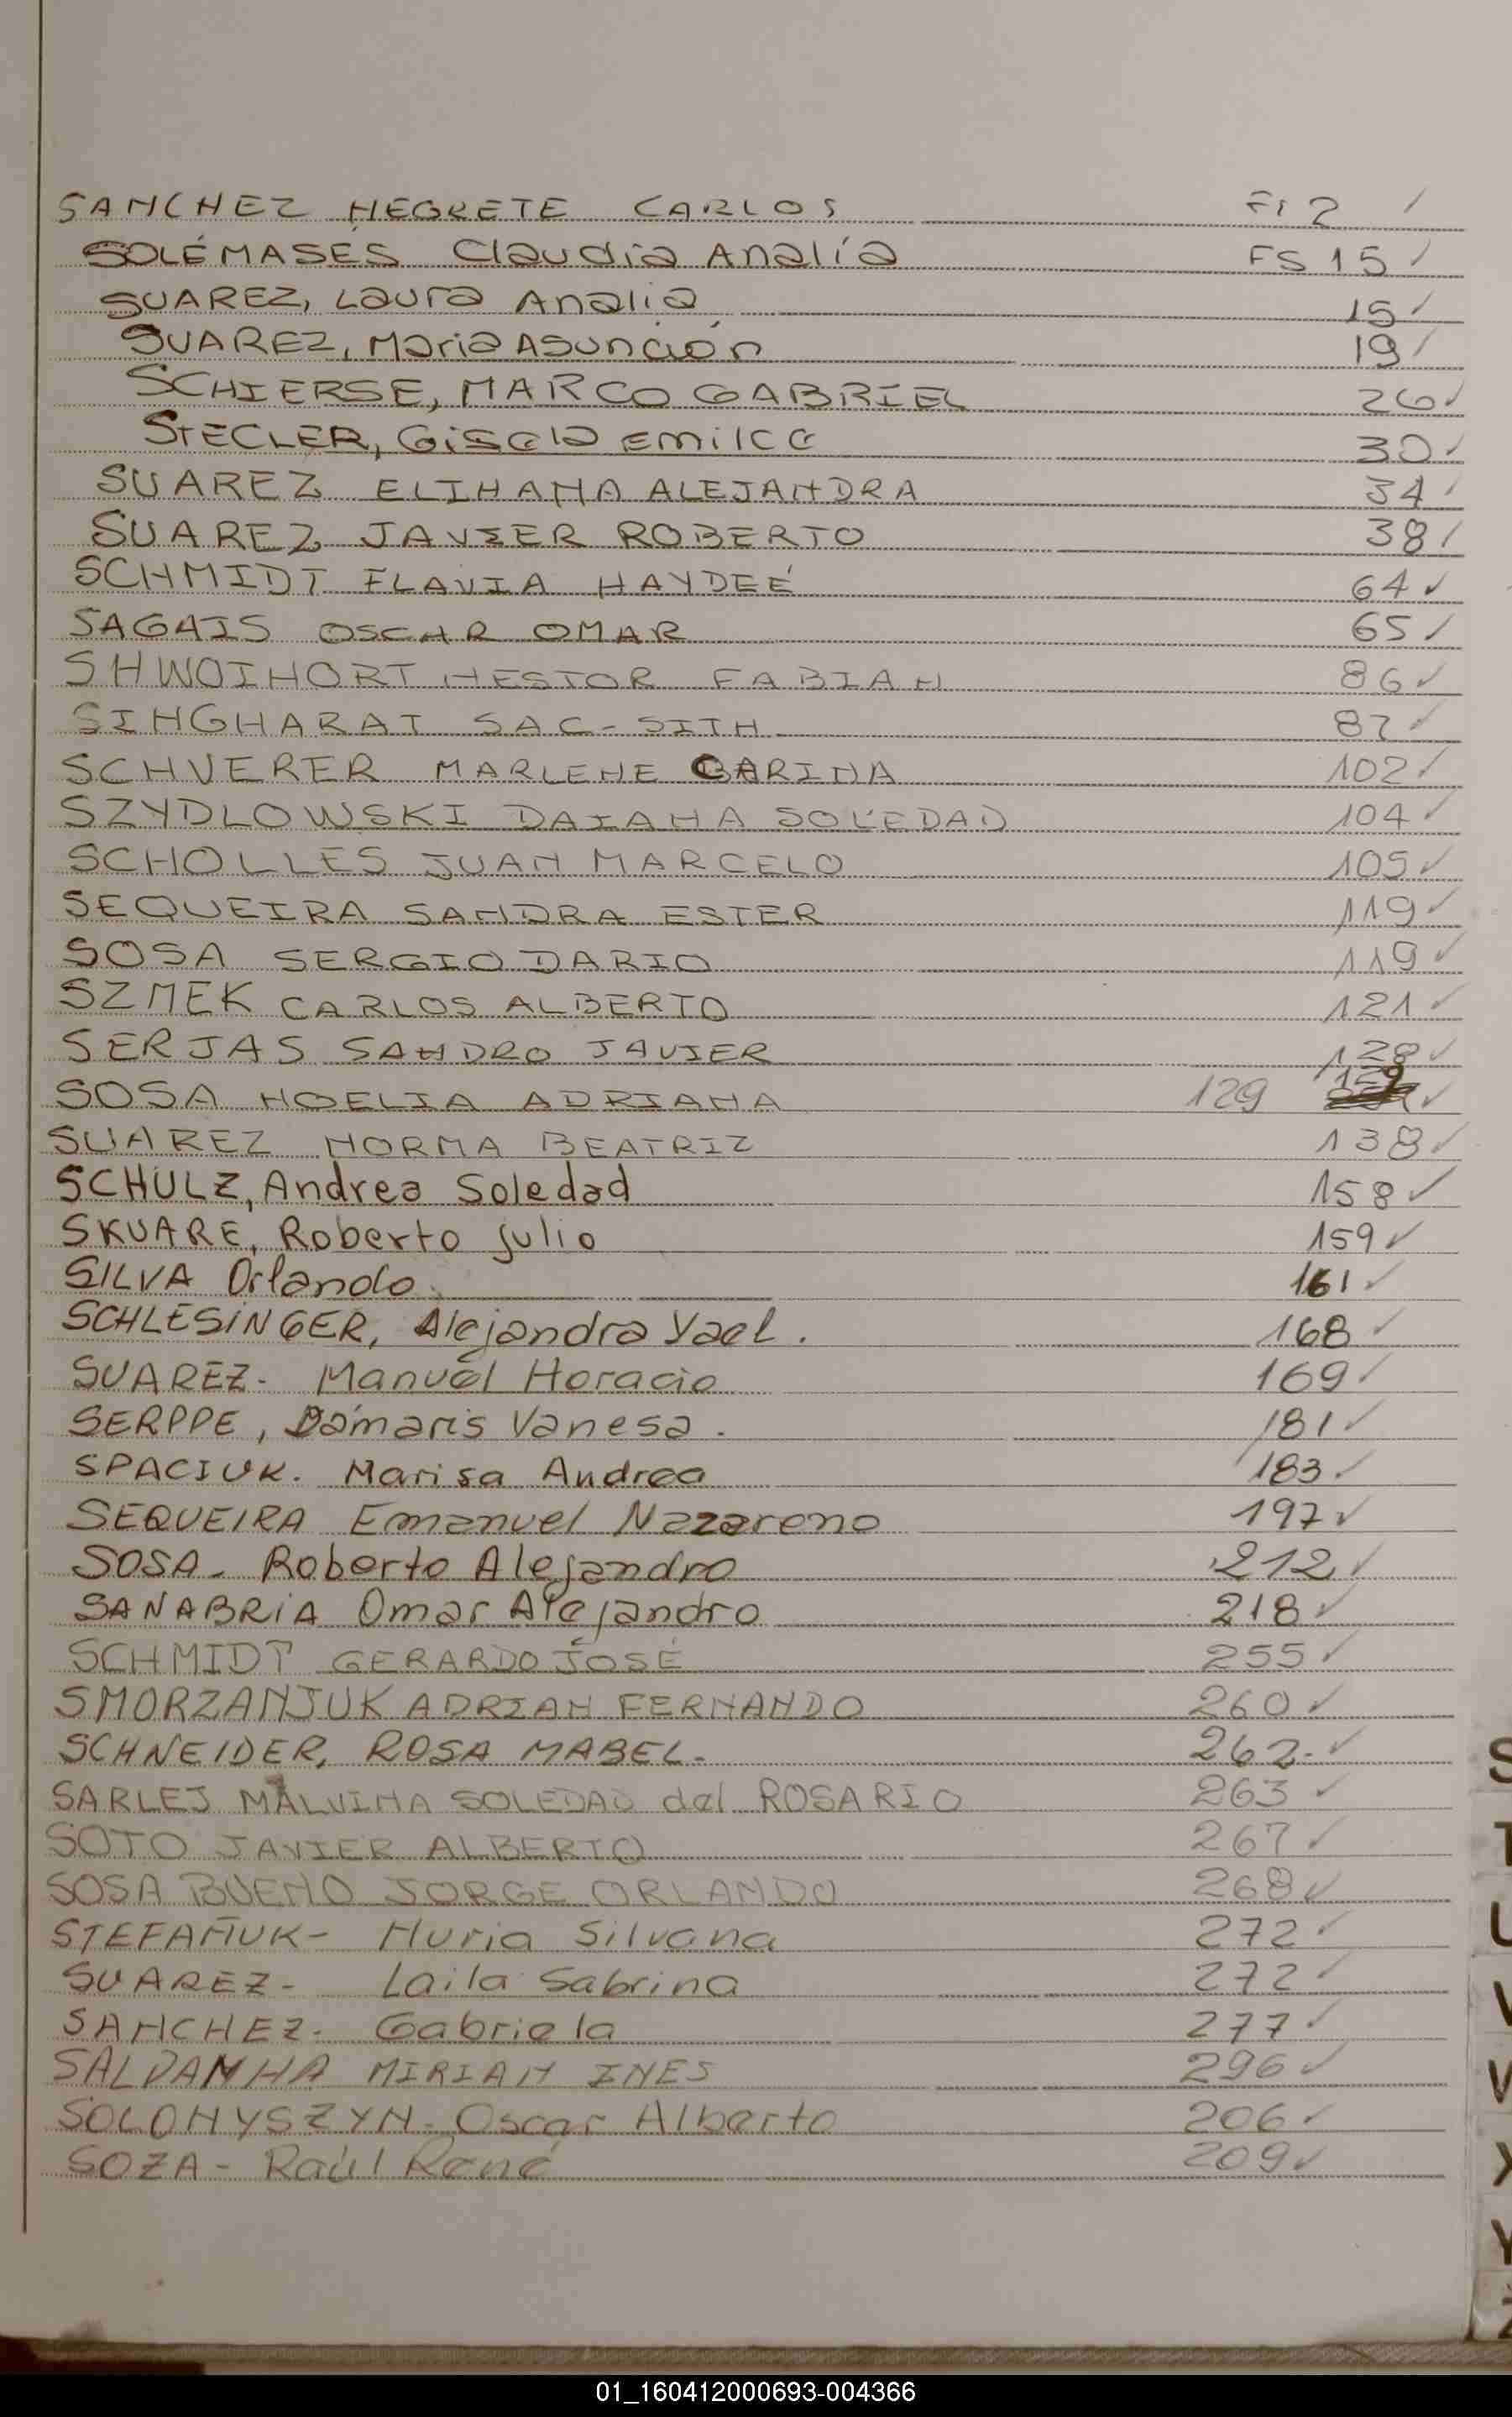 SANCHEZ NEGRETE CARLOS Fs 2 ✓
SOLÉMASES Claudia Analía FS 15 ✓
SUAREZ, Laura Analia 15 ✓
SUAREZ, Maria Asunción 19 ✓
SCHIERSE, MARCO GABRIEL 26 ✓
STECLER, Gisela Emilce 30 ✓
SUAREZ ELIHANA ALEJANDRA 34 ✓
SUAREZ JAVIER ROBERTO 38 ✓
SCHMIDT FLAVIA HAYDEÉ 64 ✓
SAGAIS OSCAR OMAR 65 ✓
SHWOIHORT NESTOR FABIAN 86 ✓
SINGHARAT SAC-SITH 87 ✓
SCHVERER MARLENE CARINA 102 ✓
SZYDLOWSKI DAIANA SOLEDAD 104 ✓
SCHOLLES JUAN MARCELO 105 ✓
SEQUEIRA SANDRA ESTER 119 ✓
SOSA SERGIO DARIO 119 ✓
SZMEK CARLOS ALBERTO 121 ✓
SERJAS SANDRO JAVIER 128 ✓
SOSA NOELIA ADRIANA 129 ✓
SUAREZ NORMA BEATRIZ 138 ✓
SCHULZ, Andrea Soledad 158 ✓
SKUARE, Roberto Julio 159 ✓
SILVA Orlando. 161 ✓
SCHLESINGER, Alejandra Yael. 168 ✓
SUAREZ- Manuel Horacio 169 ✓
SERPPE, Dámaris Vanesa. 181 ✓
SPACIUK. Marisa Andrea 183 ✓
SEQUEIRA Emanuel Nazareno 197 ✓
SOSA- Roberto Alejandro 212 ✓
SANABRIA Omar Alejandro 218 ✓
SCHMIDT GERARDO JOSÉ 255 ✓
SMORZANJUK ADRIAN FERNANDO 260 ✓
SCHNEIDER, ROSA MABEL- 262- ✓
SARLEJ MALVINA SOLEDAD del ROSARIO 263 ✓
SOTO JAVIER ALBERTO 267 ✓
SOSA BUENO JORGE ORLANDO 268 ✓
STEFAÑUK- Nuria Silvana 272 ✓
SUAREZ- Laila Sabrina 272 ✓
SANCHEZ- Gabriela 277 ✓
SALDANHA MIRIAM INES 296 ✓
SOLONYSZYN- Oscar Alberto 206 ✓
SOZA- Raúl René 209 ✓
S
T
U
V
W
X
Y
Z
01_160412000693-004366